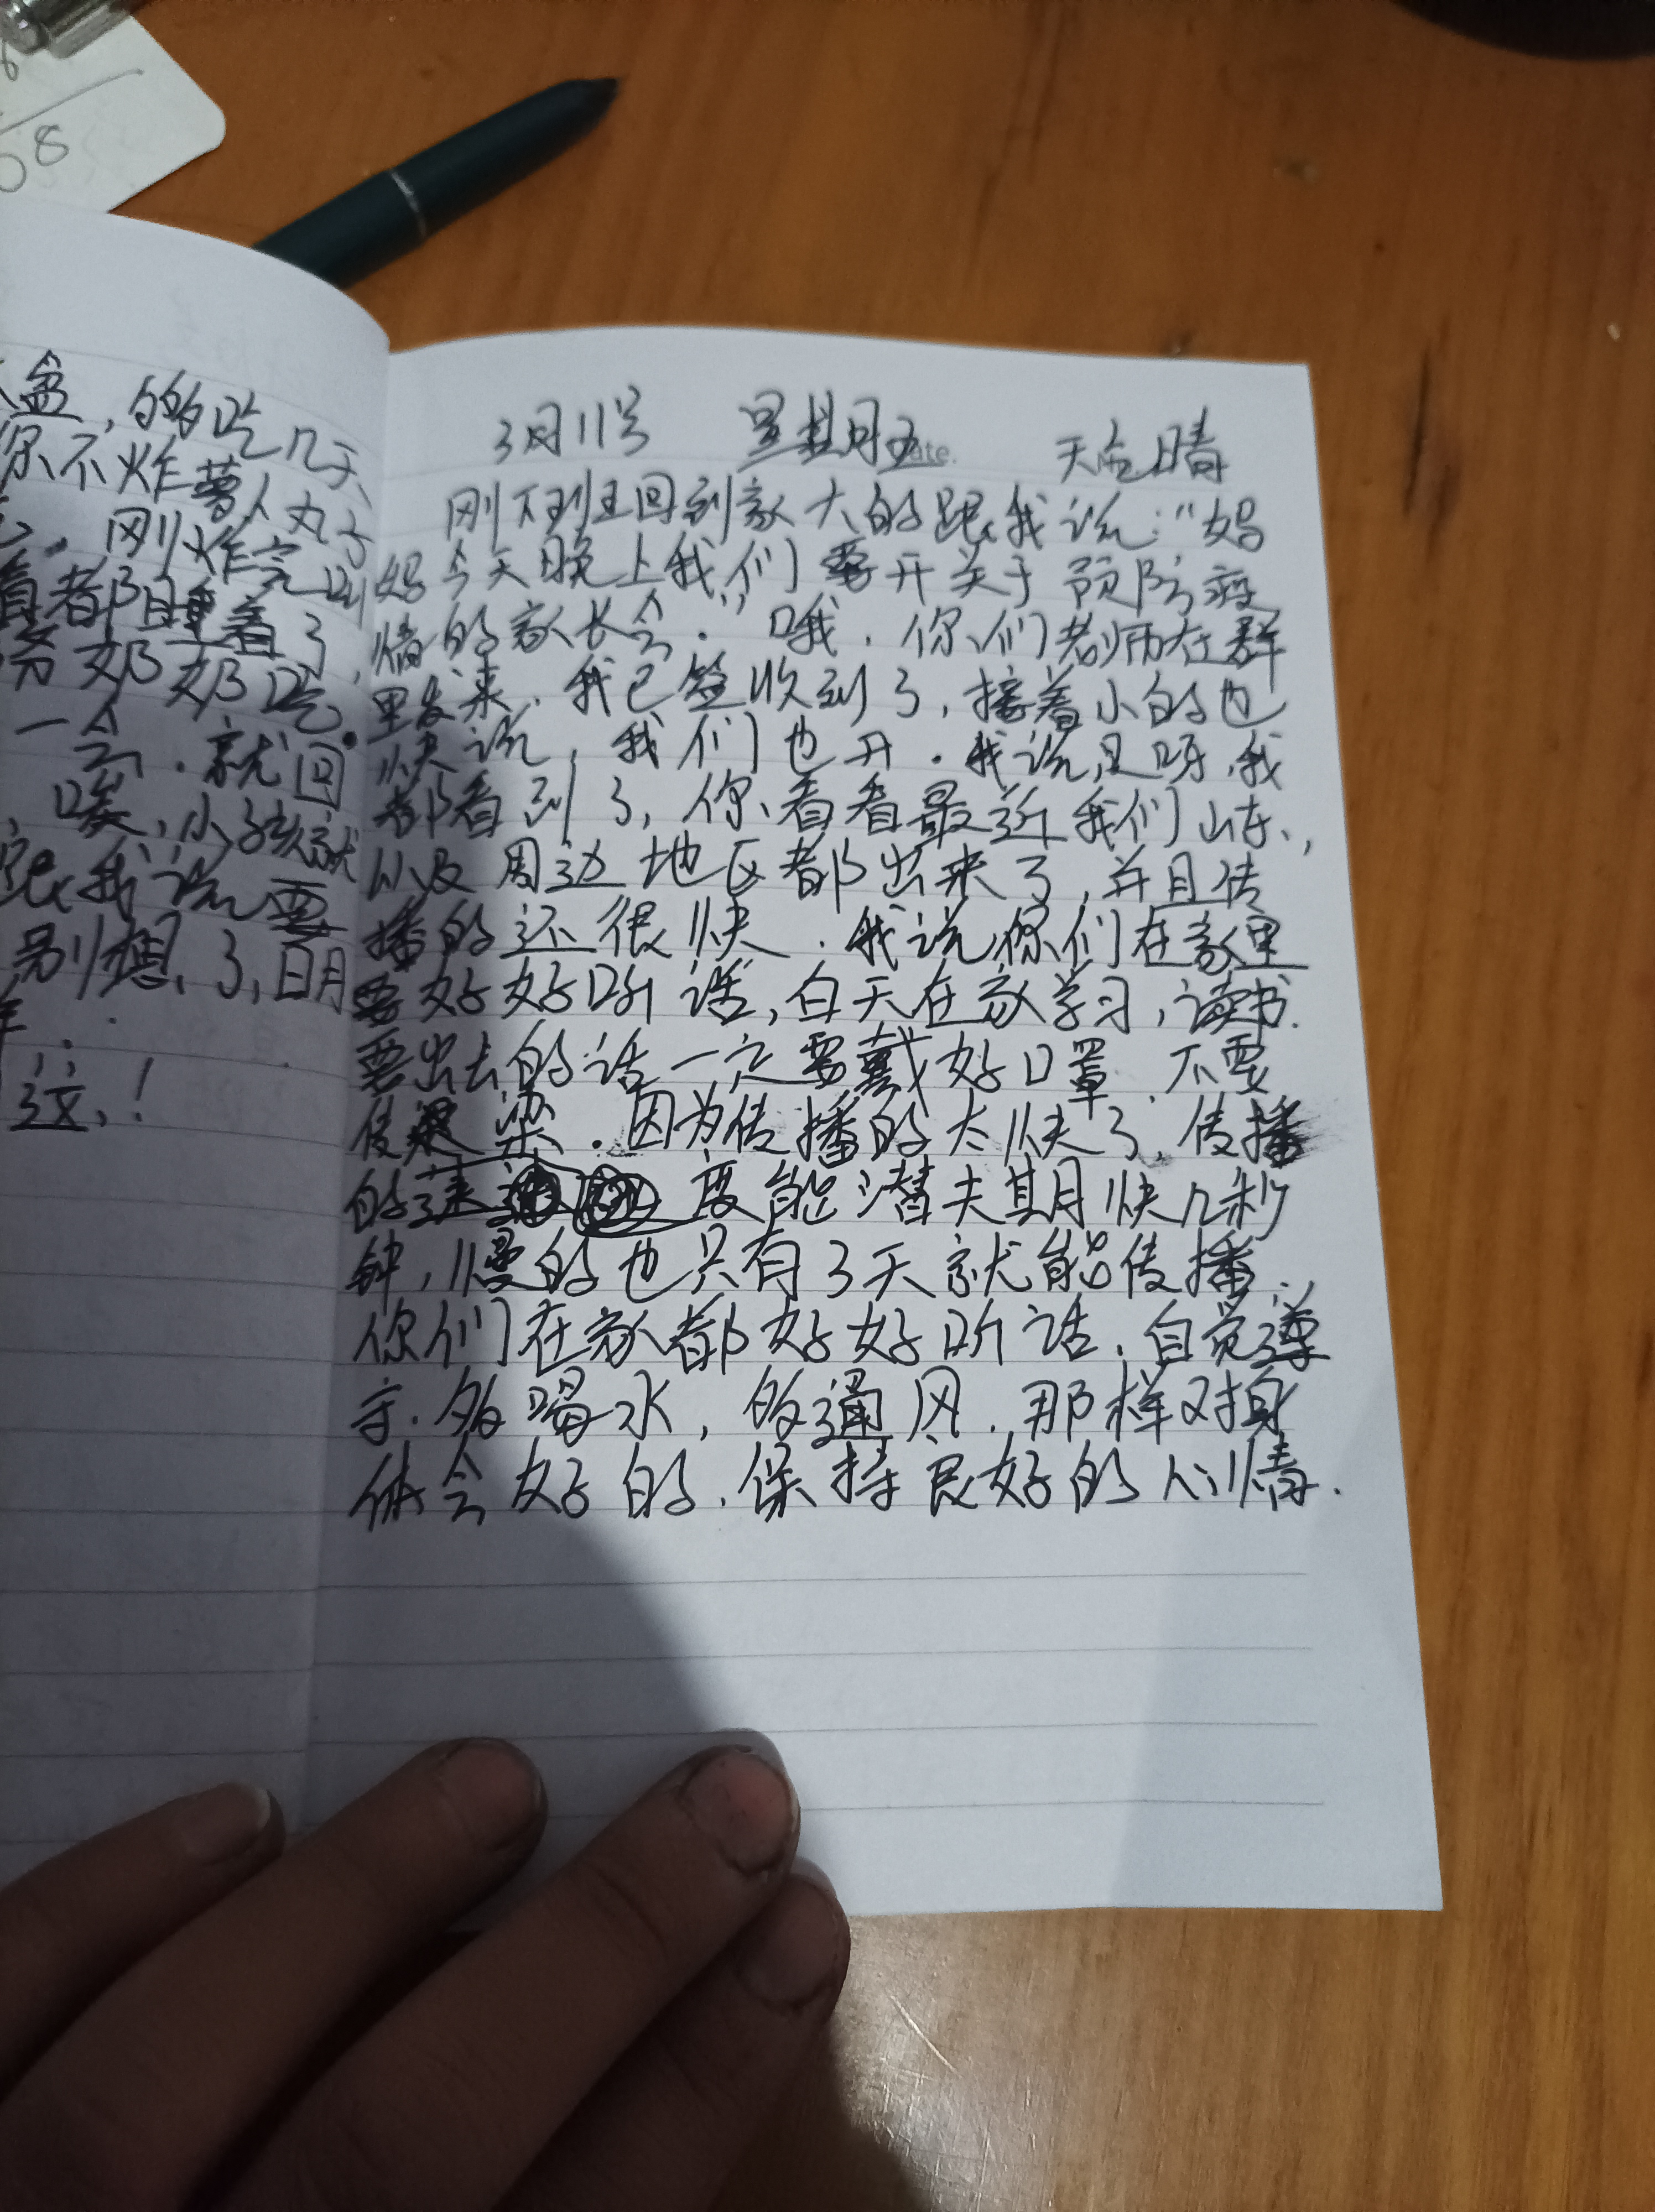 08
盆,的吃几天
你不炸萝人丸子
刚炸完
着都睡着了,
奶奶吃
一会.就回
唉,小孩就
跟我说要
别想了,明
这!
3月11号 星期五 Date. 天气晴
刚下班回到家大的跟我说:“妈
妈今天晚上我们要开关于预防疫
情的家长会.”哦.你们老师在群
里发来.我已签收到了,接着小的也
快说,我们也开.我说是呀,我
都看到了,你看看最近我们山东,
以及周边地区都出来了,并且传
播的还很快.我说你们在家里
要好好听话,白天在家学习,读书.
要出去的话一定要戴好口罩.不要
传染.因为传播的太快了,传播
的速度能潜夫期快几秒
钟,慢的也只有3天就能传播.
你们在家都好好听话.自觉遵
守.多喝水,多通风.那样对身
体会好的.保持良好的心情.